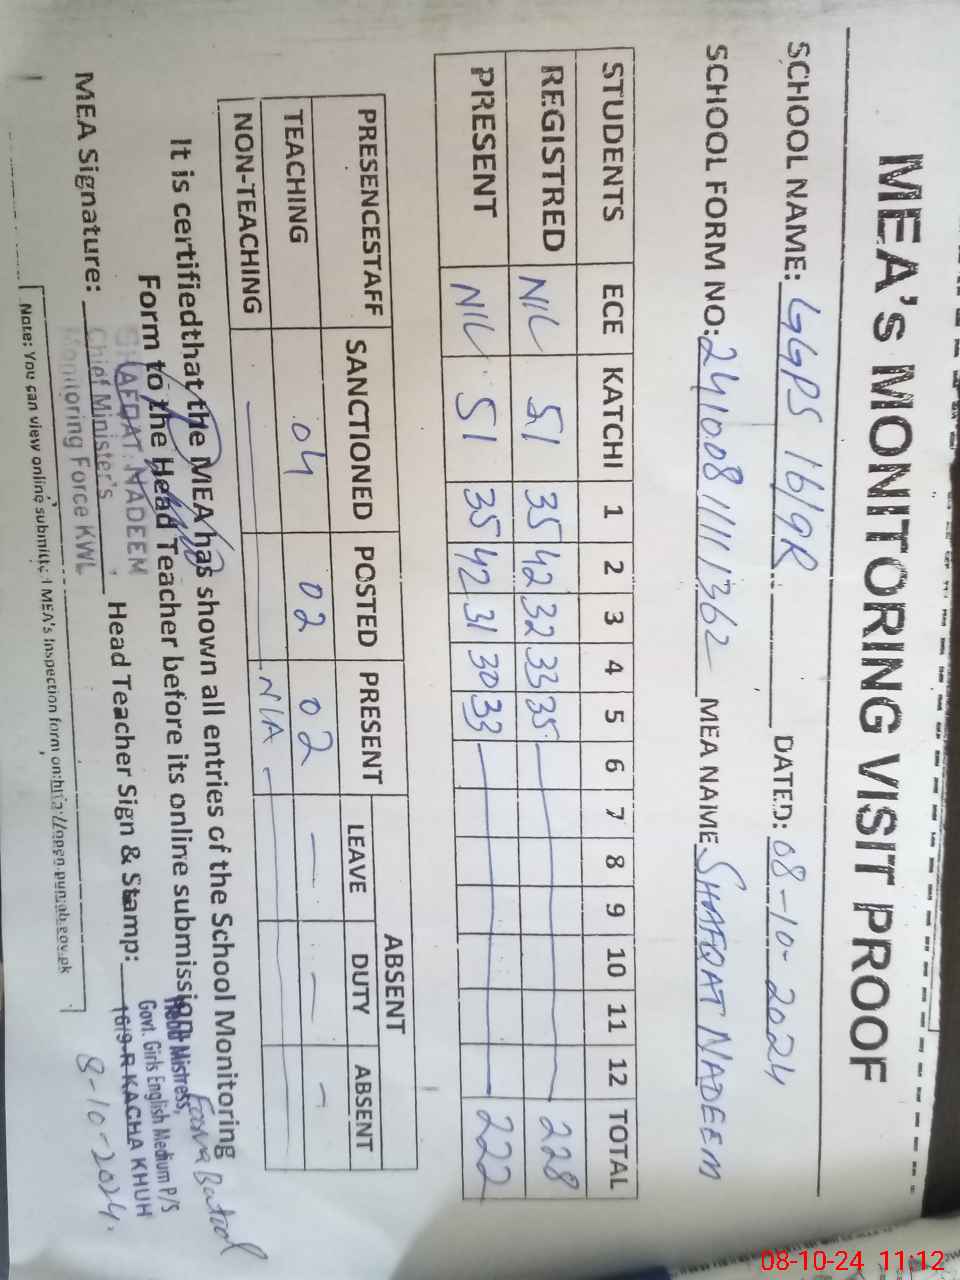 MEA's MONITORING VISIT PROOF
SCHOOL NAME: GGPS 16/9R DATED: 08-10-2024
SCHOOL FORM NO: 24100811111362 MEA NAME SHAFQAT NADEEM
STUDENTS ECE KATCHI 1 2 3 4 5 6 7 8 9 10 11 12 TOTAL
REGISTRED NIL 51 35 42 32 33 35 228
PRESENT NIL 51 35 42 31 30 33 222
ABSENT
PRESENCESTAFF SANCTIONED POSTED PRESENT LEAVE DUTY ABSENT
TEACHING 04 02 02 — — —
NON-TEACHING — N/A —
It is certifiedthat the MEA has shown all entries of the School Monitoring
Form to the Head Teacher before its online submission
MEA Signature: Head Teacher Sign & Stamp:
SHAFQAT NADEEM
Chief Minister's
Monitoring Force KWL
Head Mistress,
Govt. Girls English Medium P/S
16/9-R KACHA KHUH
8-10-2024.
Note: You can view online submitted MEA's Inspection form on:http://open.punjab.gov.pk
08-10-24 11:12